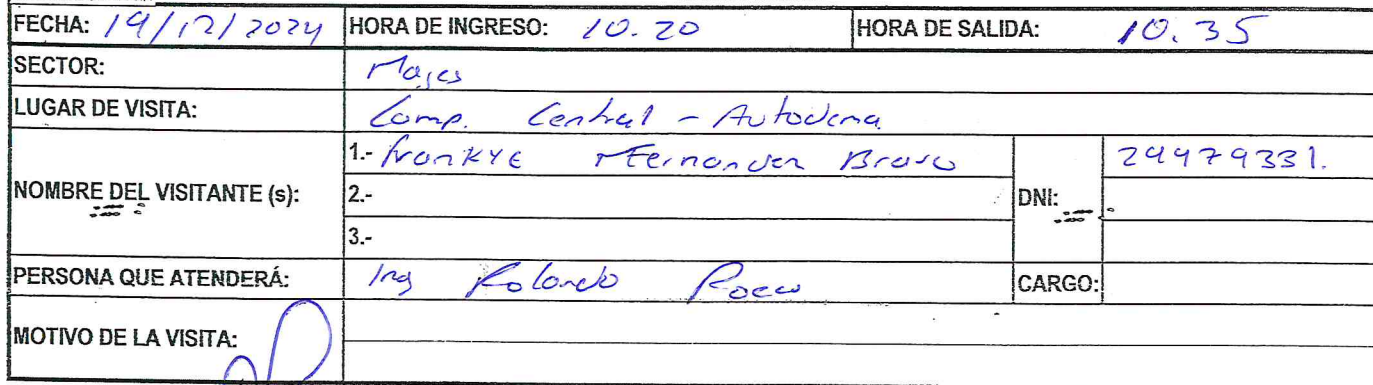 FECHA: 19/12/2024 HORA DE INGRESO: 10.20 HORA DE SALIDA: 10.35
SECTOR: Majes
LUGAR DE VISITA: Camp. Central - Autodema
NOMBRE DEL VISITANTE (s): 1.- Frankye Hernander Bravo DNI: 29479331.
2.-
3.-
PERSONA QUE ATENDERÁ: Ing Rolando CARGO:
MOTIVO DE LA VISITA: